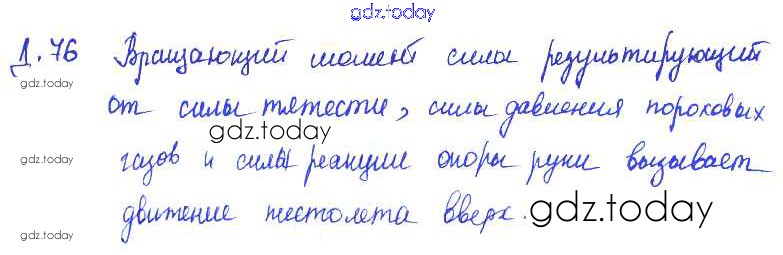 gdz.today
Д.76 Вращающий момент силы результирующий
gdz.today
от силы тяжести, силы давления пороховых
gdz.today
gdz.today газов и силы реакции опоры руки вызывает
движение пистолета вверх. gdz.today
gdz.today